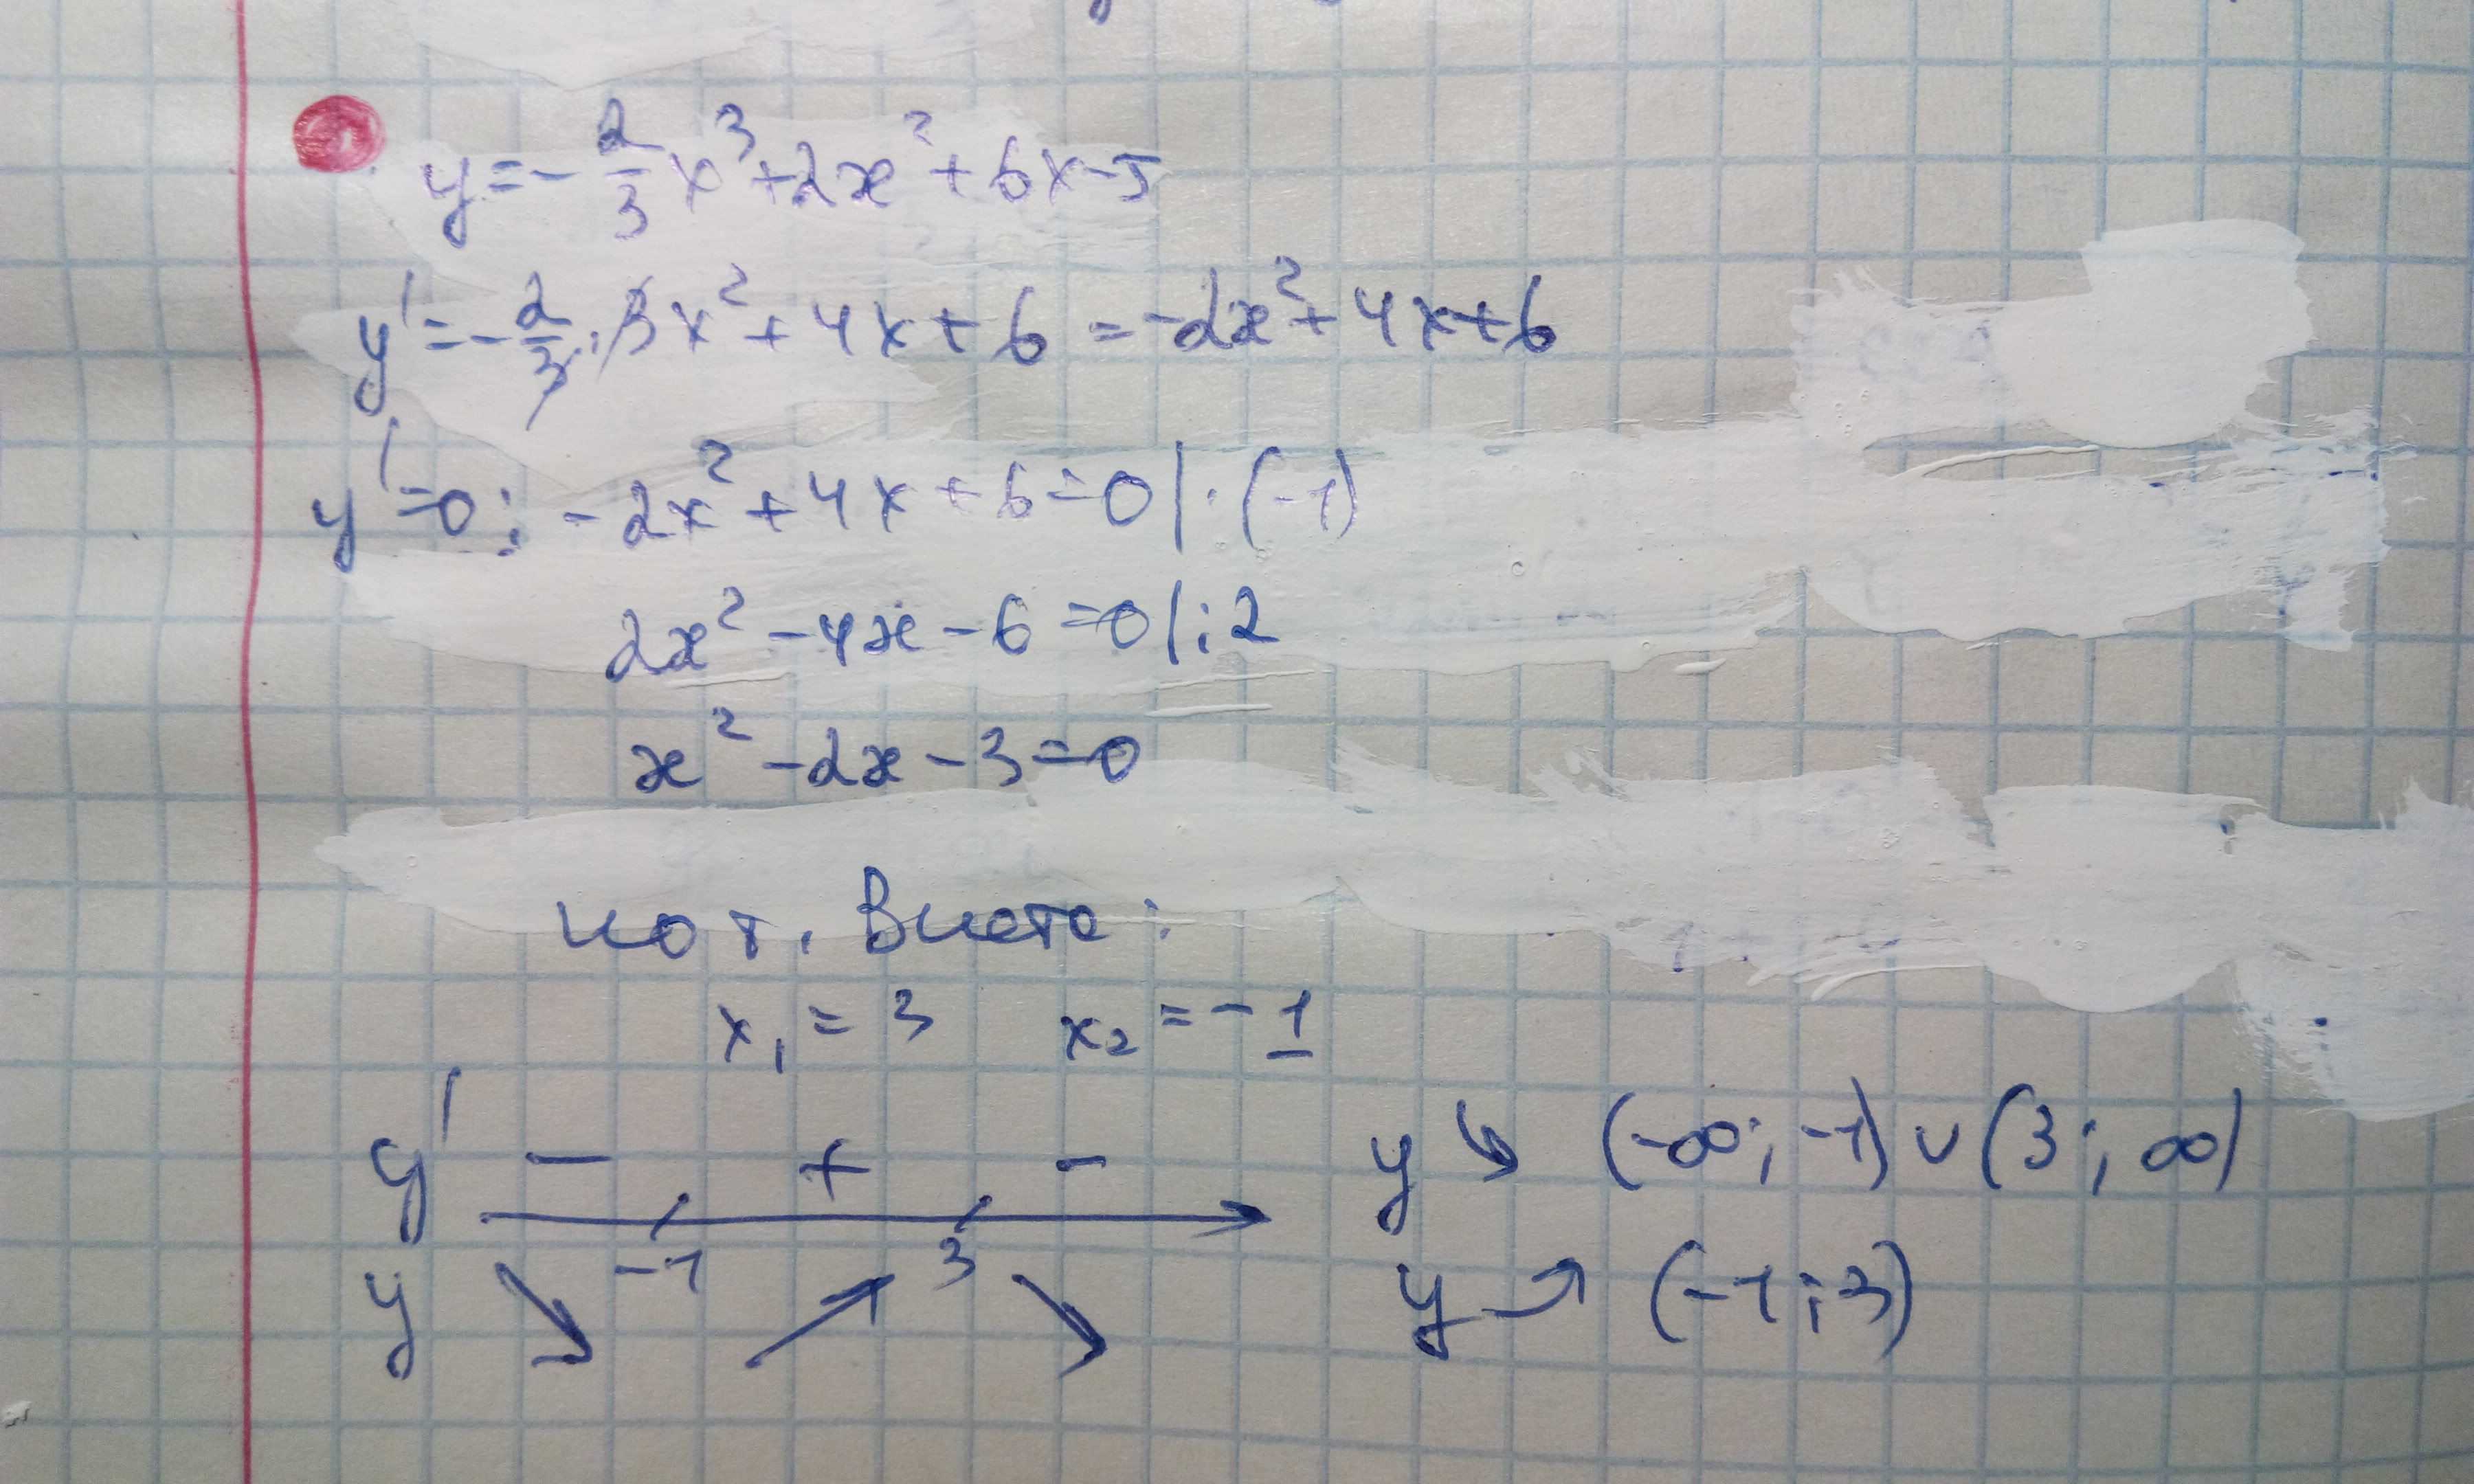 y=-2/3x³+2x²+6x-5
y'=-2/3·3x²+4x+6=-2x²+4x+6
y'=0: -2x²+4x+6=0|·(-1)
2x²-4x-6=0|:2
x²-2x-3=0
по т. Виета:
x₁=3 x₂=-1
y' - + - y↘ (-∞;-1)∪(3;∞)
-1 3
y ↘ ↗ ↘ y↗ (-1;3)